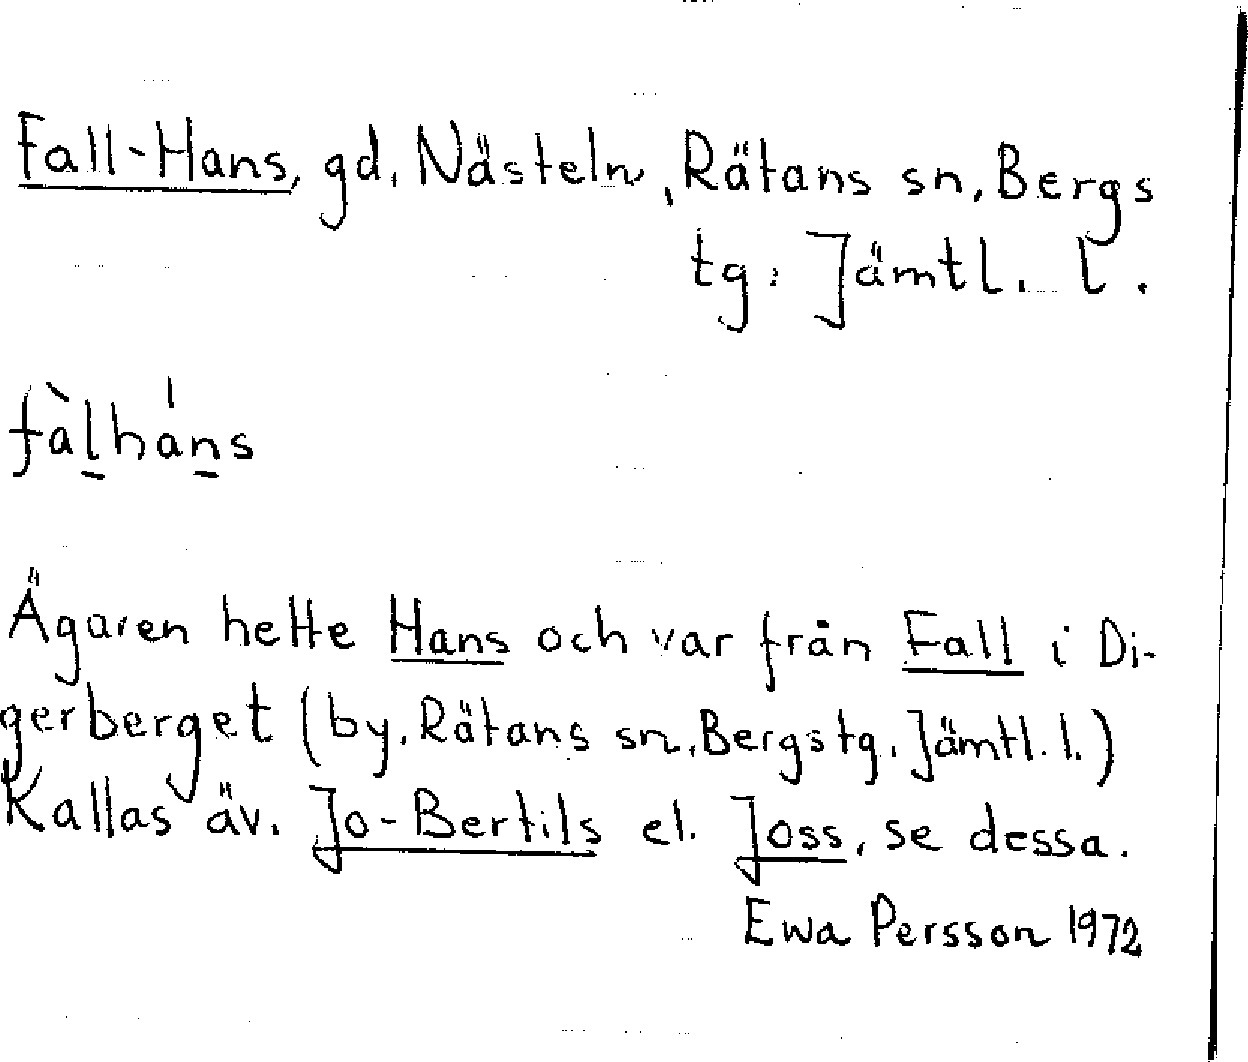 Fall-Hans, gd, Nästeln, Rätans sn, Bergs
tg, Jämtl. l.
fàl̠há̍n̠s
Ägaren hette Hans och var från Fall i Di-
gerberget (by, Rätans sn, Bergs tg, Jämtl. l.)
Kallas äv. Jo-Bertils el. Joss, se dessa.
Ewa Persson 1972